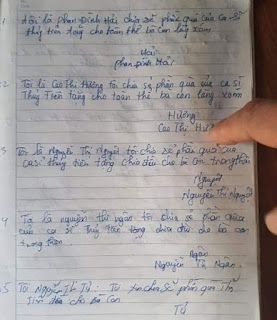 1 Tôi là Phan Đình Hải chia sẻ phần quà của Ca-Sĩ
thủy tiên tặng cho toàn thể bà con làng xóm
Hải
Phan Đình Hải
2 Tôi là Cao Thị Hường tôi chia sẻ phần quà của ca sĩ
Thủy Tiên Tặng cho toàn thể bà con làng xóm
Hường
Cao Thị Hường
3 Tôi là Nguyễn Thị Nguyệt tôi chia sẻ phần quà của
ca sĩ thủy tiên tặng chia đều cho bà con trong thôn
Nguyệt
Nguyễn Thị Nguyệt
4 Tôi là nguyễn thị ngân tôi chia sẻ phần quà
của ca sĩ Thủy tiên tặng chia đều cho bà con
trong thôn
Ngân
Nguyễn Thị Ngân
5 Tôi Nguyễn Thị Tứ: Tôi xin chia sẻ phần quà
cho bà con
Tứ